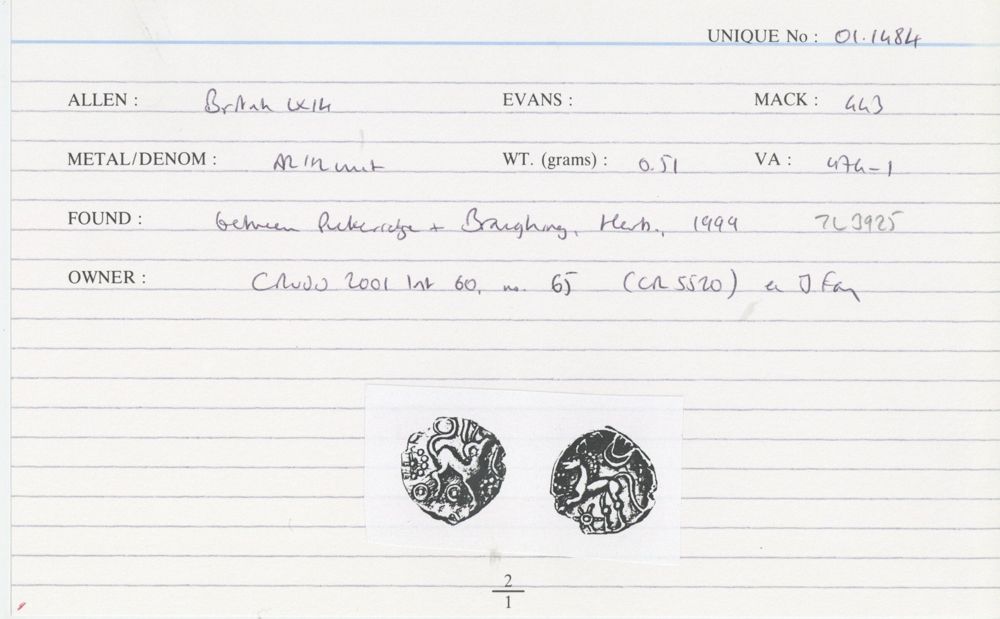 UNIQUE No : 01.1484
ALLEN : British LX14 EVANS : MACK : 443
METAL/DENOM : AR 1/2 unit WT. (grams) : 0.51 VA : 474-1
FOUND : between Puckeridge + Braughing, Herts., 1999 TL 3925
OWNER : 2001 lot 60, no. 65 (CR 5520) ex J Fay
2
1